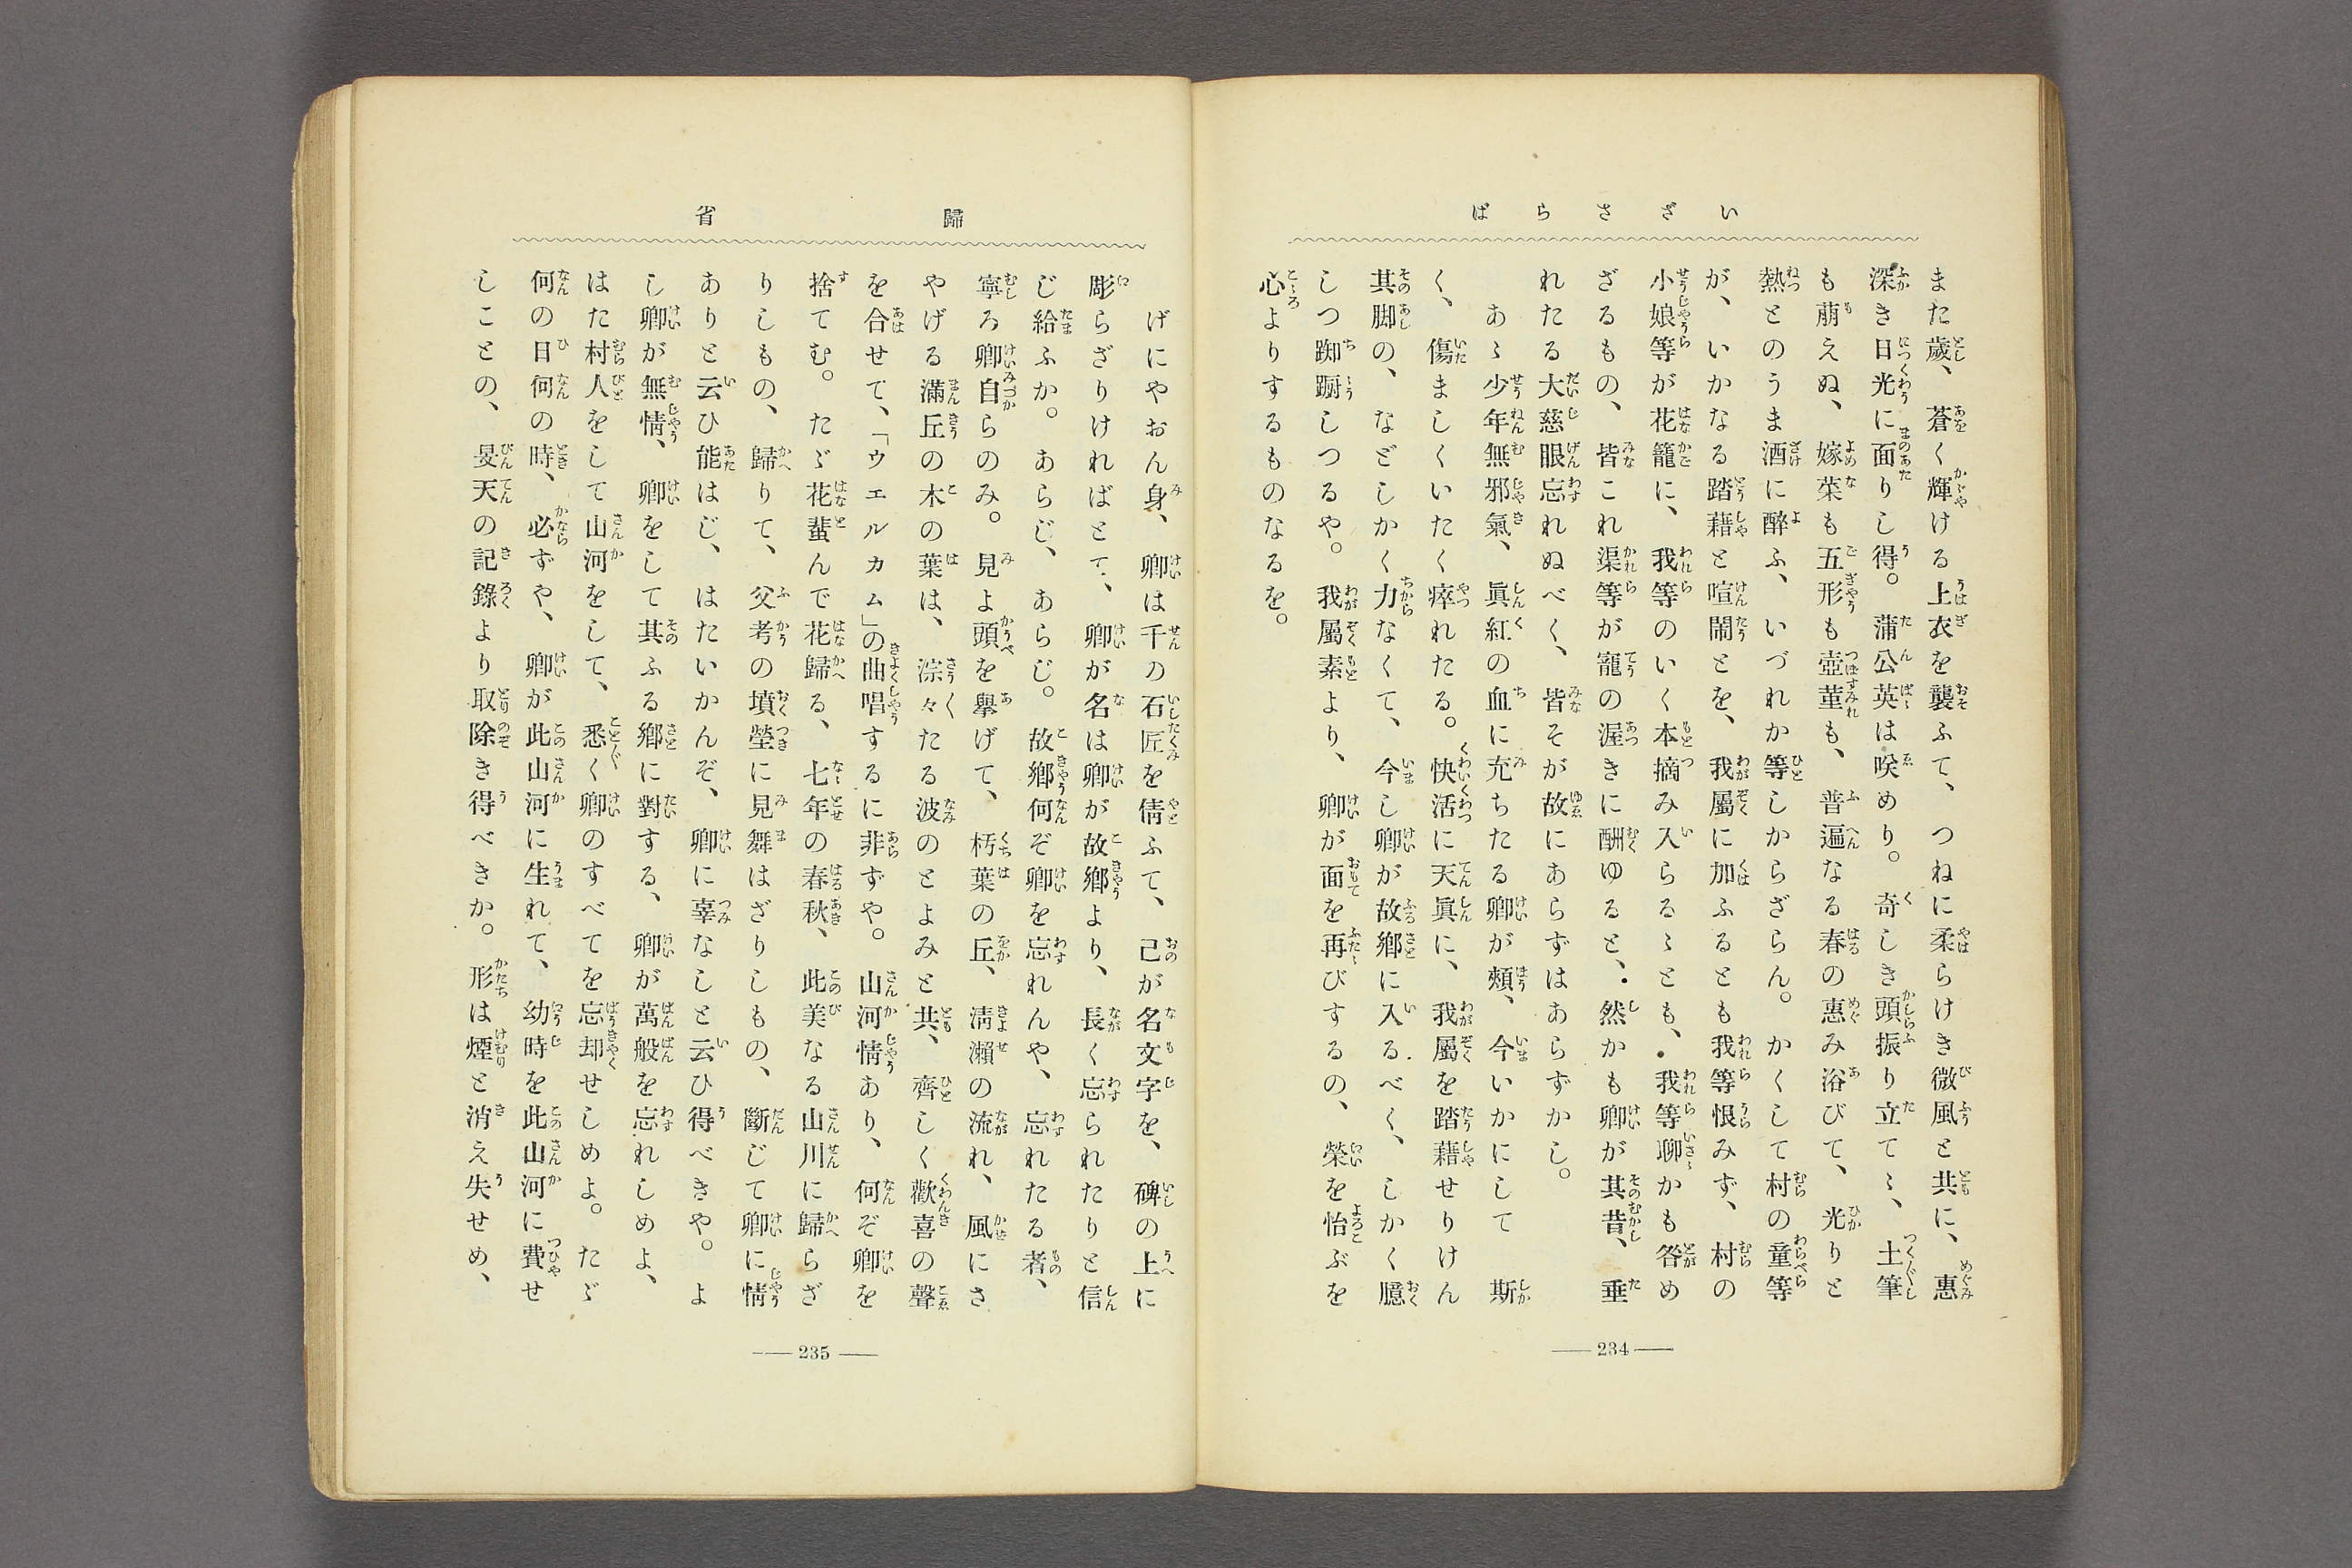 いざさらば
また歲、蒼く輝ける上衣を襲ふて、つねに柔らけき微風と共に、惠
深き日光に面りし得。蒲公英は咲めり。奇しき頭振り立てゝ、土筆
も萠えぬ、嫁菜も五形も壺菫も、普遍なる春の惠み浴びて、光りと
熱とのうま酒に醉ふ、いづれか等しからざらん。かくして村の童等
が、いかなる踏藉と喧鬧とを、我屬に加ふるとも我等恨みず、村の
小娘等が花籠に、我等のいく本摘み入らるゝとも、我等聊かも咎め
ざるもの、皆これ渠等が寵の渥きに酬ゆると、然かも卿が其昔、垂
れたる大慈眼忘れぬべく、皆そが故にあらずはあらずかし。
あゝ少年無邪氣、眞紅の血に充ちたる卿が頰、今いかにして斯
く、傷ましくいたく瘁れたる。快活に天眞に、我屬を踏藉せりけん
其脚の、などしかく力なくて、今し卿が故鄕に入るべく、しかく臆
しつ踟蹰しつるや。我屬素より、卿が面を再びするの、榮を怡ぶを
心よりするものなるを。
234
歸省
げにやおん身、卿は千の石匠を倩ふて、己が名文字を、碑の上に
彫らざりければとて、卿が名は卿が故鄕より、長く忘られたりと信
じ給ふか。あらじ、あらじ。故鄕何ぞ卿を忘れんや、忘れたる者、
寧ろ卿自らのみ。見よ頭を擧げて、朽葉の丘、淸瀨の流れ、風にさ
やげる滿丘の木の葉は、淙々たる波のとよみと共、齊しく歡喜の聲
を合せて、「ウエルカム」の曲唱するに非ずや。山河情あり、何ぞ卿を
捨てむ。たゞ花蜚んで花歸る、七年の春秋、此美なる山川に歸らざ
りしもの、歸りて、父考の墳塋に見舞はざりしもの、斷じて卿に情
ありと云ひ能はじ、はたいかんぞ、卿に辜なしと云ひ得べきや。よ
し卿が無情、卿をして其ふる鄕に對する、卿が萬般を忘れしめよ、
はた村人をして山河をして、悉く卿のすべてを忘却せしめよ。たゞ
何の日何の時、必ずや、卿が此山河に生れて、幼時を此山河に費せ
しことの、旻天の記錄より取除き得べきか。形は煙と消え失せめ、
235